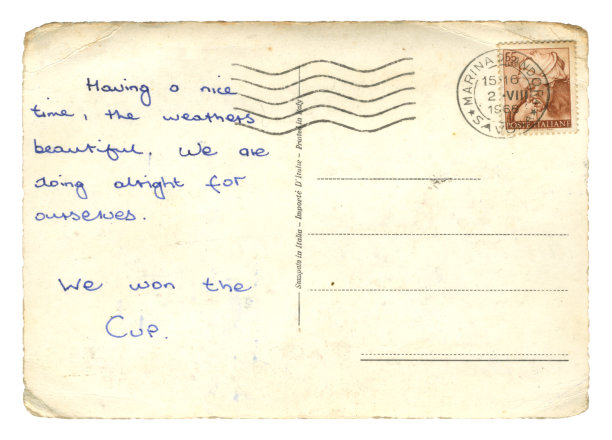 Having a nice
time, the weathers
beautiful, we are
doing alright for
ourselves.
We won the
Cup.
Stampato in Italia - Importé D'Italie - Printed in Italy
55
MARINA
15-16
2 -VIII
1966
POSTE ITALIANE